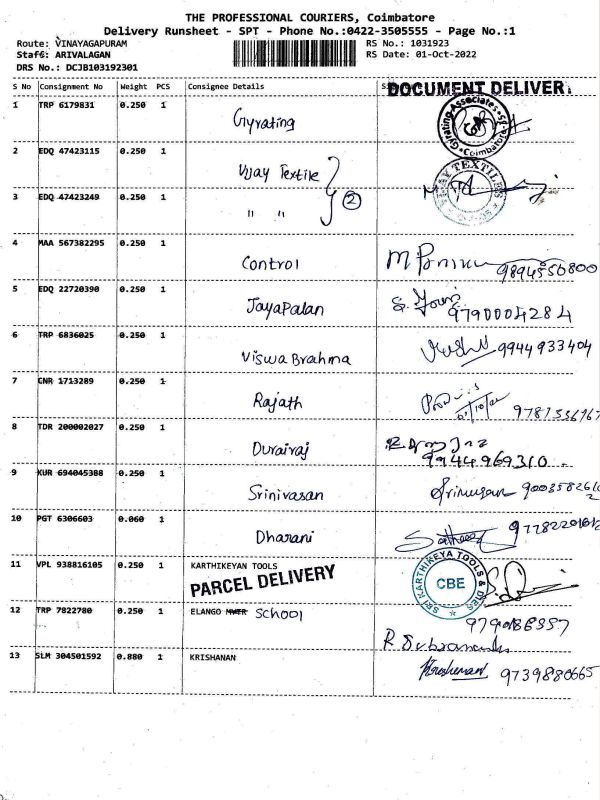 THE PROFESSIONAL COURIERS, Coimbatore
Delivery Runsheet - SPT - Phone No.:0422-3505555 - Page No.:1
Route: VINAYAGAPURAM RS No.: 1031923
Staff: ARIVALAGAN RS Date: 01-Oct-2022
DRS No.: DCJB103192301
S No Consignment No Weight PCS Consignee Details
DOCUMENT DELIVER
1 TRP 6179831 0.250 1 Gyrating
Gyrating Associates Coimbatore
2 EDQ 47423115 0.250 1 Vijay Textile
VIJAY TEXTILES
3 EDQ 47423249 0.250 1 " " 2
4 MAA 567382295 0.250 1 Control 9894556800
5 EDQ 22720390 0.250 1 JayaPalan 9790004284
6 TRP 6836025 0.250 1 Viswa Brahma 9944933404
7 CNR 1713289 0.250 1 Rajath
8 TDR 200002027 0.250 1 Durairaj 9944969310
9 KUR 694045388 0.250 1 Srinivasan Srinivasan
10 PGT 6306603 0.060 1 Dharani
11 VPL 938816105 0.250 1 KARTHIKEYAN TOOLS
PARCEL DELIVERY
SRI KARTHIKEYA TOOLS & DIES CBE
12 TRP 7822780 0.250 1 ELANGO School
13 SLM 304501592 0.880 1 KRISHANAN 9739880665